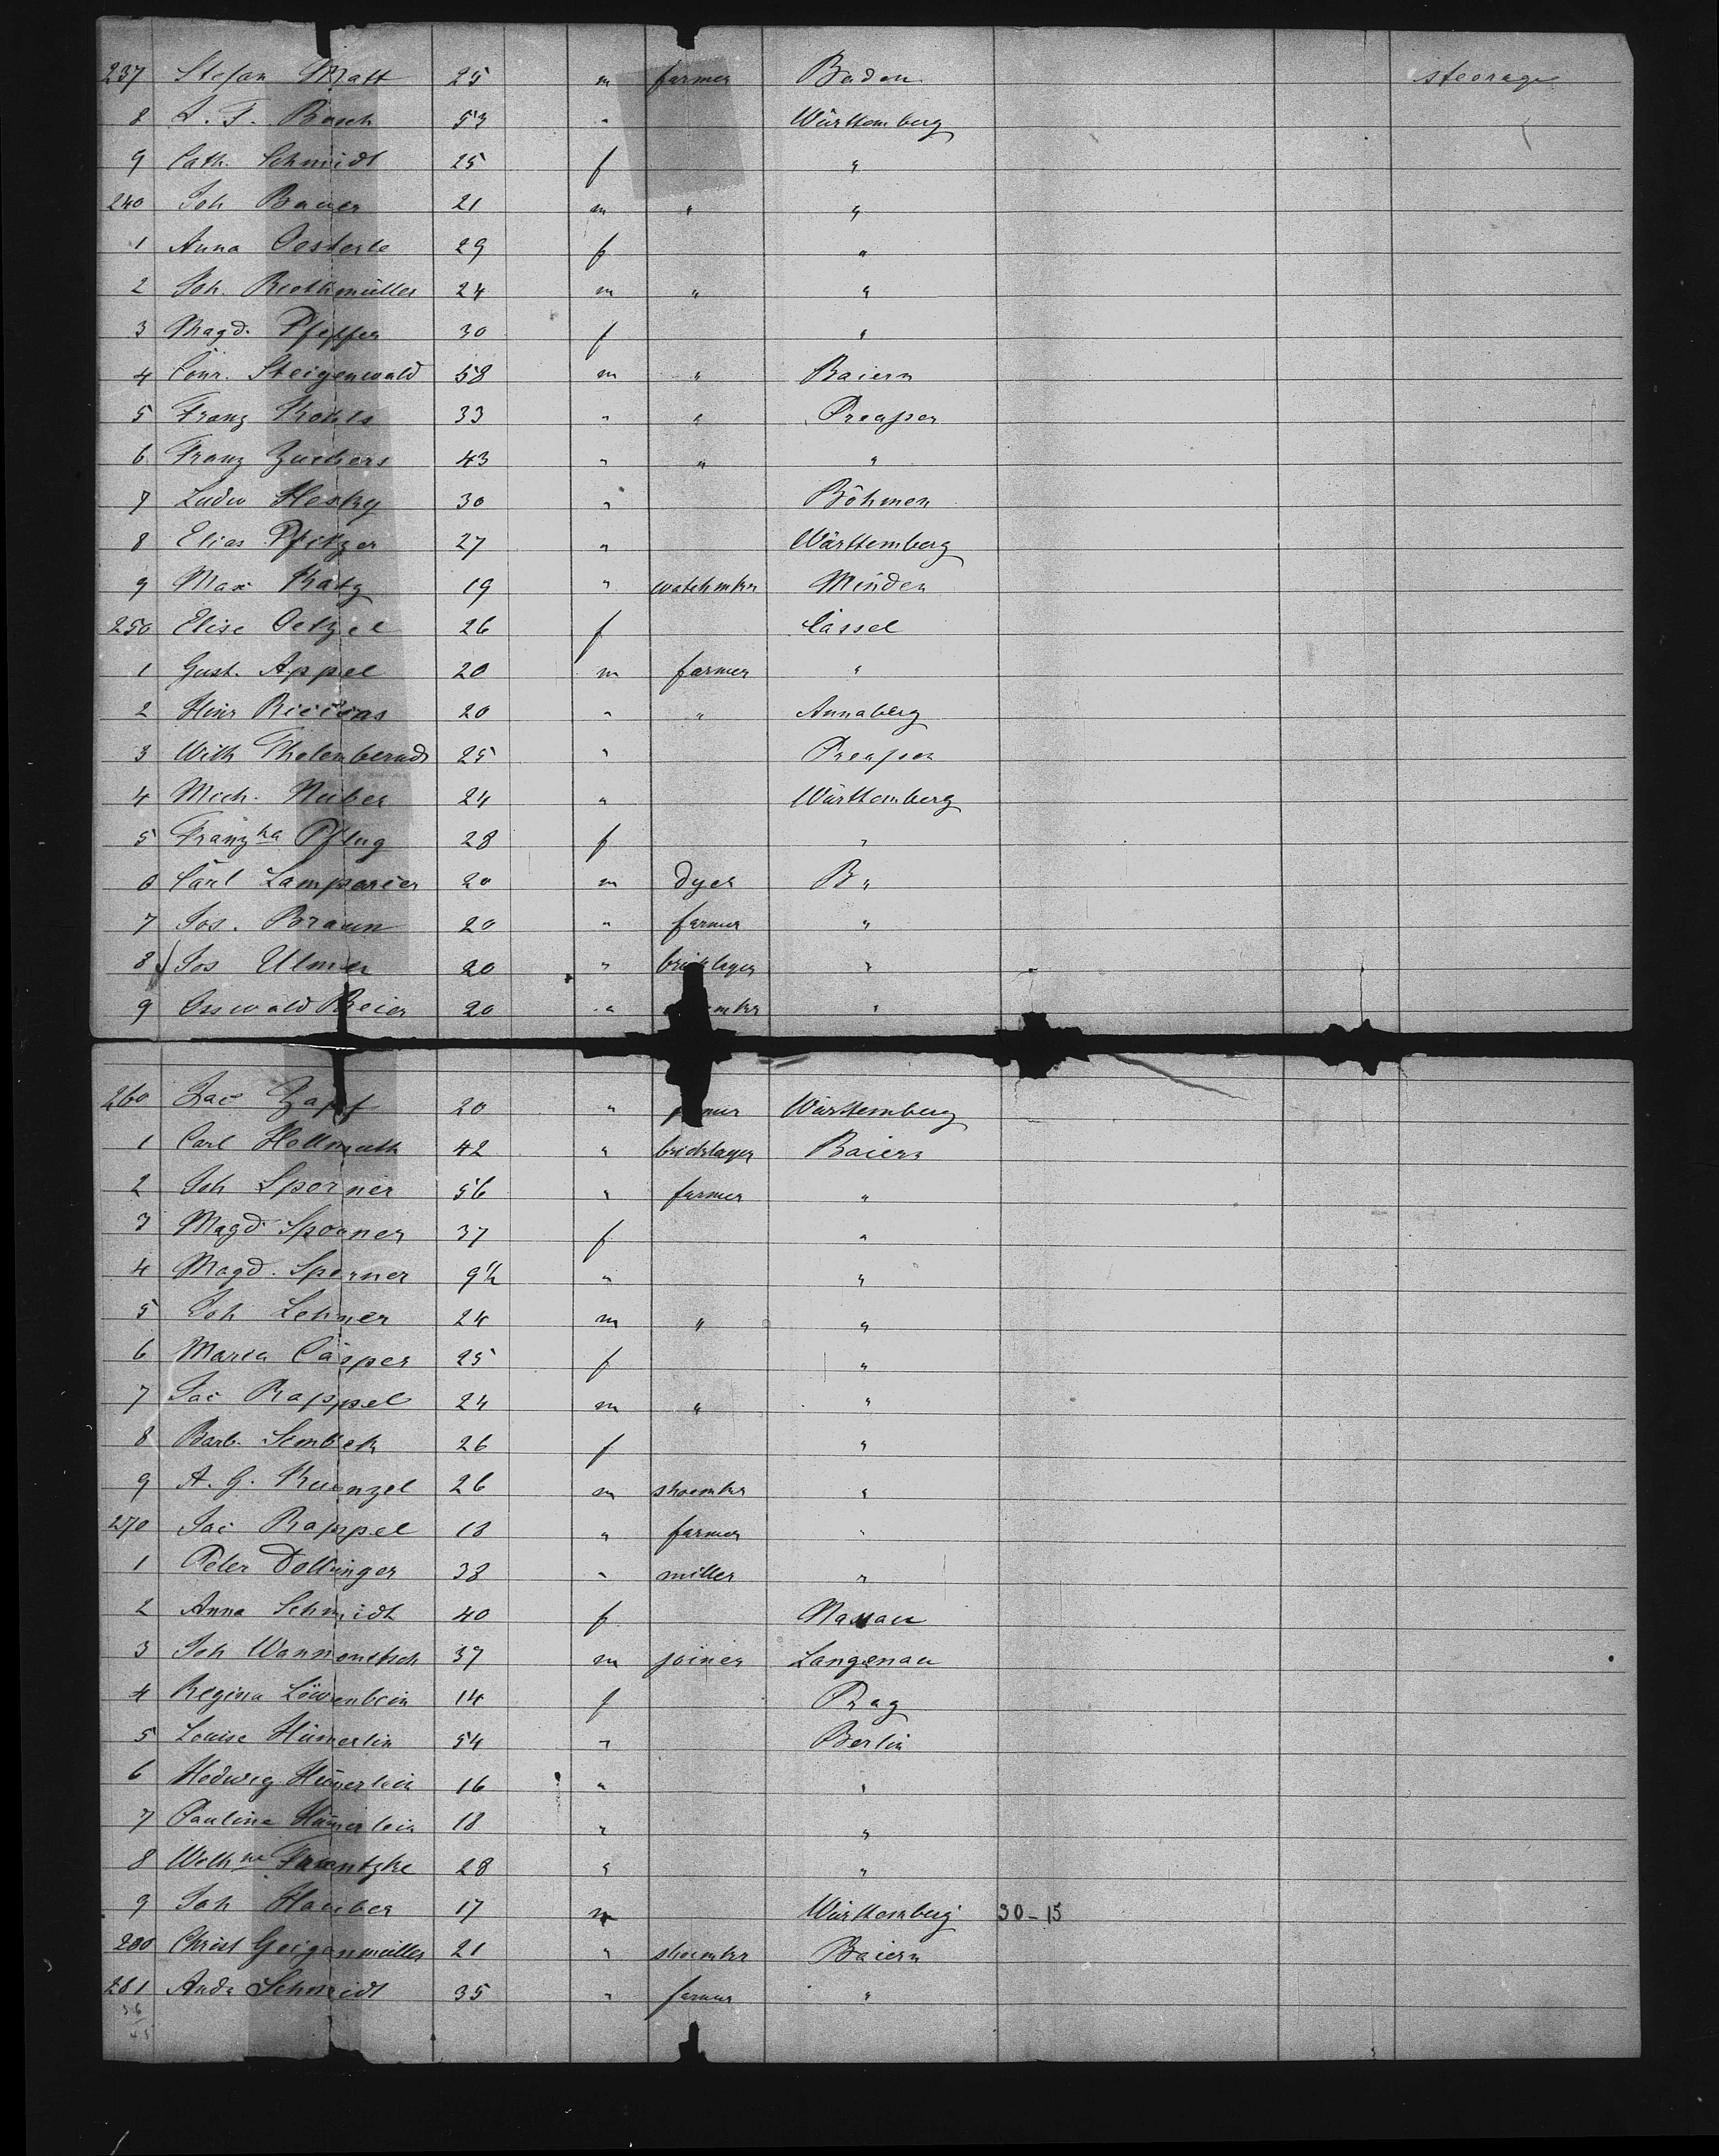 237 Stefan Matt 25 m farmer Baden steerage
8 L. F. Bosch 53 " Württemberg
9 Cath. Schmidt 25 f "
240 Joh Bauer 21 m " "
1 Anna Oesterle 29 f "
2 Joh. Riethmüller 24 m " "
3 Magd. Pfeffer 30 f "
4 Conr. Steigerwald 58 m " Baiern
5 Franz 33 " " Preussen
6 Franz 43 " " "
7 Ludw 30 " Böhmen
8 Elias Pfitzer 27 " Württemberg
9 Max Katz 19 " watchmkr Minden
250 Elise Oetzel 26 f Cassel
1 Gust. Appel 20 m farmer "
2 Heinr 20 " " Annaberg
3 Wilh 25 " Preussen
4 Mich. 24 " Württemberg
5 Franzka Pflug 28 f "
6 Carl Lamparter 20 m dyer B "
7 Jos. Braun 20 " farmer "
8 Jos Ulmer 20 " bricklayer "
9 Osswald Beier 20 " mkr "
260 Jac Zapf 20 " Württemberg
1 Carl Hellmuth 42 " bricklayer Baiern
2 Joh Sporner 56 " farmer "
3 Magd Sporner 37 f "
4 Magd. Sporner 9½ " "
5 Joh Lehner 24 m " "
6 Maria Casper 25 f "
7 Jac Rappel 24 m " "
8 Barb. 26 f "
9 A. G. Kuenzel 26 m shoemkr "
270 Jac Rappel 18 " farmer "
1 Peter Dollinger 38 " miller "
2 Anna Schmidt 40 f Nassau
3 Joh Wannenetsch 37 m joiner Langenau
4 Regina Löwenbein 14 f Prag
5 Louise Hümerlin 54 " Berlin
6 Hedwig Hümerlein 16 " "
7 Pauline Hümerlein 18 " "
8 28 " "
9 Joh Hauber 17 m Württemberg 30-15
280 Christ Geigenmüller 21 " shoemkr Baiern
281 Andr Schmidt 35 " farmer "